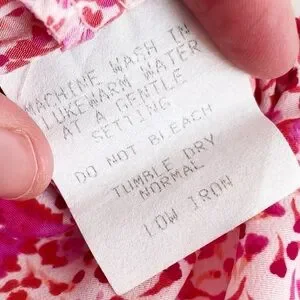 MACHINE WASH IN
LUKEWARM WATER
AT A GENTLE
SETTING
DO NOT BLEACH
TUMBLE DRY
NORMAL
LOW IRON